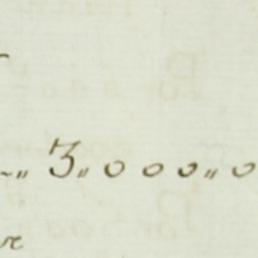 -„ 3„ 0 0 0„ 0